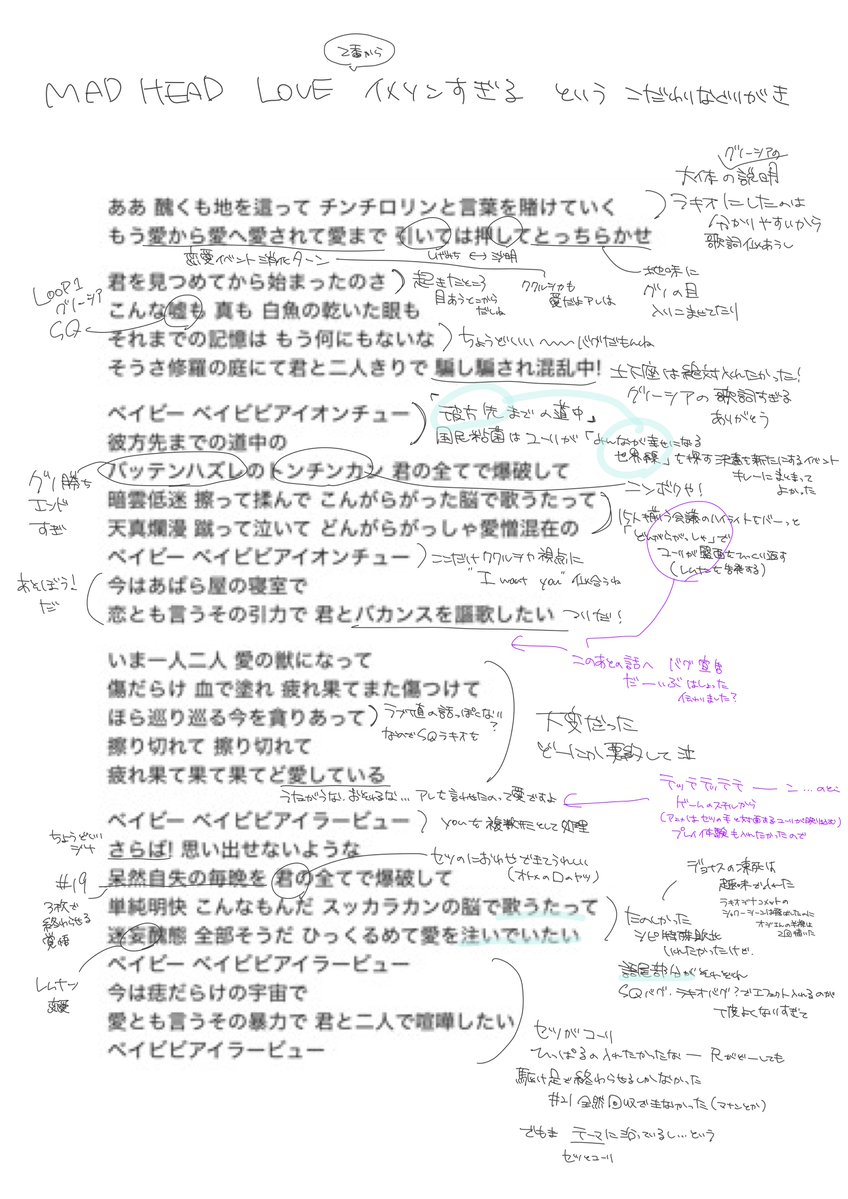 2番から
MAD HEAD LOVE イメソンすぎる という こだわりなどりがき
グノーシアの
大体の説明
ああ 醜くも地を這って チンチロリンと言葉を賭けていく
もう愛から愛へ愛されて愛まで 引いては押してとっちらかせ
ラキオにしたのは
分かりやすいから
歌詞似あうし
恋愛イベント消化ターン
しげみち ↔ 沙明
地味に
グノの目
入りこませてたり
LOOP1
グノーシア
SQ
君を見つめてから始まったのさ
こんな嘘も 真も 白魚の乾いた眼も
それまでの記憶は もう何にもないな
そうさ修羅の庭にて君と二人きりで 騙し騙され混乱中!
起きたところ
目あうとこから
だしね
ククルシカも
愛だよアレは
ちょうどいい〜〜〜バグだもんね
土下座は絶対入れたかった!
グノーシアの歌詞すぎる
ありがとう
ベイビー ベイビビアイオンチュー
彼方先までの道中の
バッテンハズレのトンチンカン 君の全てで爆破して
「彼方先までの道中」
国民粘菌はユーリが「みんなが幸せになる
世界線」を探す決意を新たにするイベント
キレーにまとまって
よかった
グノ勝ち
エンド
すぎ
暗雲低迷 擦って揉んで こんがらがった脳で歌うたって
天真爛漫 蹴って泣いて どんがらがっしゃ愛憎混在の
ベイビー ベイビビアイオンチュー
15人揃う会議のハイライトをバーっと
「どんがらがっしゃ」で
ユーリが盤面をひっくり返す
(レムナンを告発する)
ここだけククルシカ視点に
"I want you" 似合うね
あそぼう!
だ
今はあばら屋の寝室で
恋とも言うその引力で 君とバカンスを謳歌したい
ついだ!
このあとの話へ バグ宣告
だーいぶはしょった
伝わりました?
いま一人二人 愛の獣になって
傷だらけ 血で塗れ 疲れ果てまた傷つけて
ほら巡り巡る今を貪りあって
擦り切れて 擦り切れて
疲れ果て果て果てど愛している
ラブで直の話っぽくない?
なのでSQラキオを
大変だった
どーにか要約して泣
うたがうな、おそれるな…アレを言わせたのって愛ですよ
テッテテッテテ ――ン…のとこ
ゲームのスチルから
プレイ体験も入れたかったので
ベイビー ベイビビアイラービュー
さらば! 思い出せないような
呆然自失の毎晩を 君の全てで爆破して
単純明快 こんなもんだ スッカラカンの脳で歌うたって
迷妄醜態 全部そうだ ひっくるめて愛を注いでいたい
ベイビー ベイビビアイラービュー
今は痣だらけの宇宙で
愛とも言うその暴力で 君と二人で喧嘩したい
ベイビビアイラービュー
youを複数形として処理
ちょうどいい
シナ
#19
3枚で
終わらせる
覚悟
レムナン
恋愛
セツのにおわせできてうれしい
(オトメの口のヤツ)
ジョナスの凍死は
趣味で入れた
たのしかった
語尾部分がそれぞれ
SQバグ・ラキオバグ?でエフェクト入れるのが
丁度よくないすぎて
セツがユーリ
ひっぱるの入れたかったなー 尺がどーしても
駆け足で終わらせるしかなかった
#21 全然回収できなかった(マナンとか)
でもま テーマに沿っているし…という
セツとユーリ